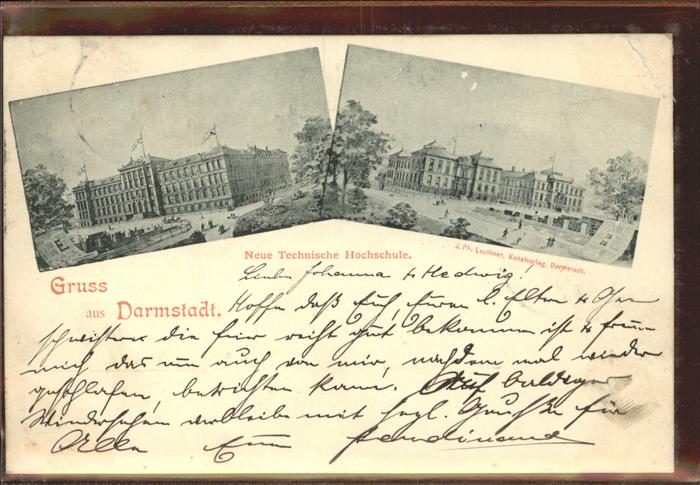 Neue Technische Hochschule.
J. Ph. Leuthner, Kunstverlag, Darmstadt.
Gruss
aus Darmstadt.
Liebe Johanna & Hedwig!
Hoffe daß Euch, Euren l. Eltern &
schwistern die feier recht gut bekommen ist &
mich das nun auch von mir, nachdem mal wieder
geschlafen, berichten kann. Auf baldiges
Wiedersehen verbleibe mit herzl. Grüße für
Alle Euer Ferdinand